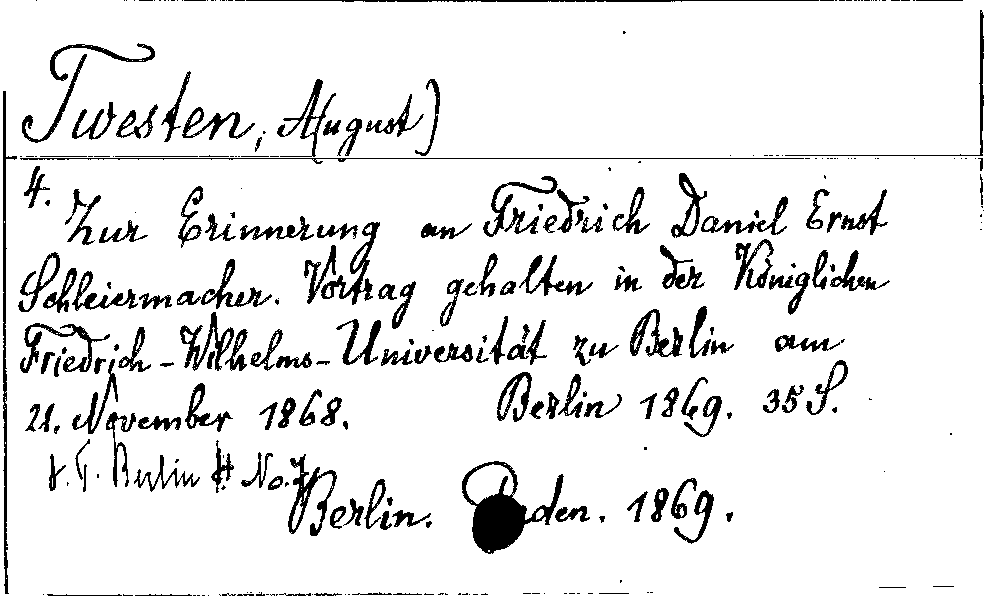 Twesten, A(ugust)
4.
Zur Erinnerung an Friedrich Daniel Ernst
Schleiermacher. Vortrag gehalten in der Königlichen
Friedrich-Wilhelms-Universität zu Berlin am
21. November 1868. Berlin 1869. 35 S.
Berlin No. 7
Berlin. 1869.